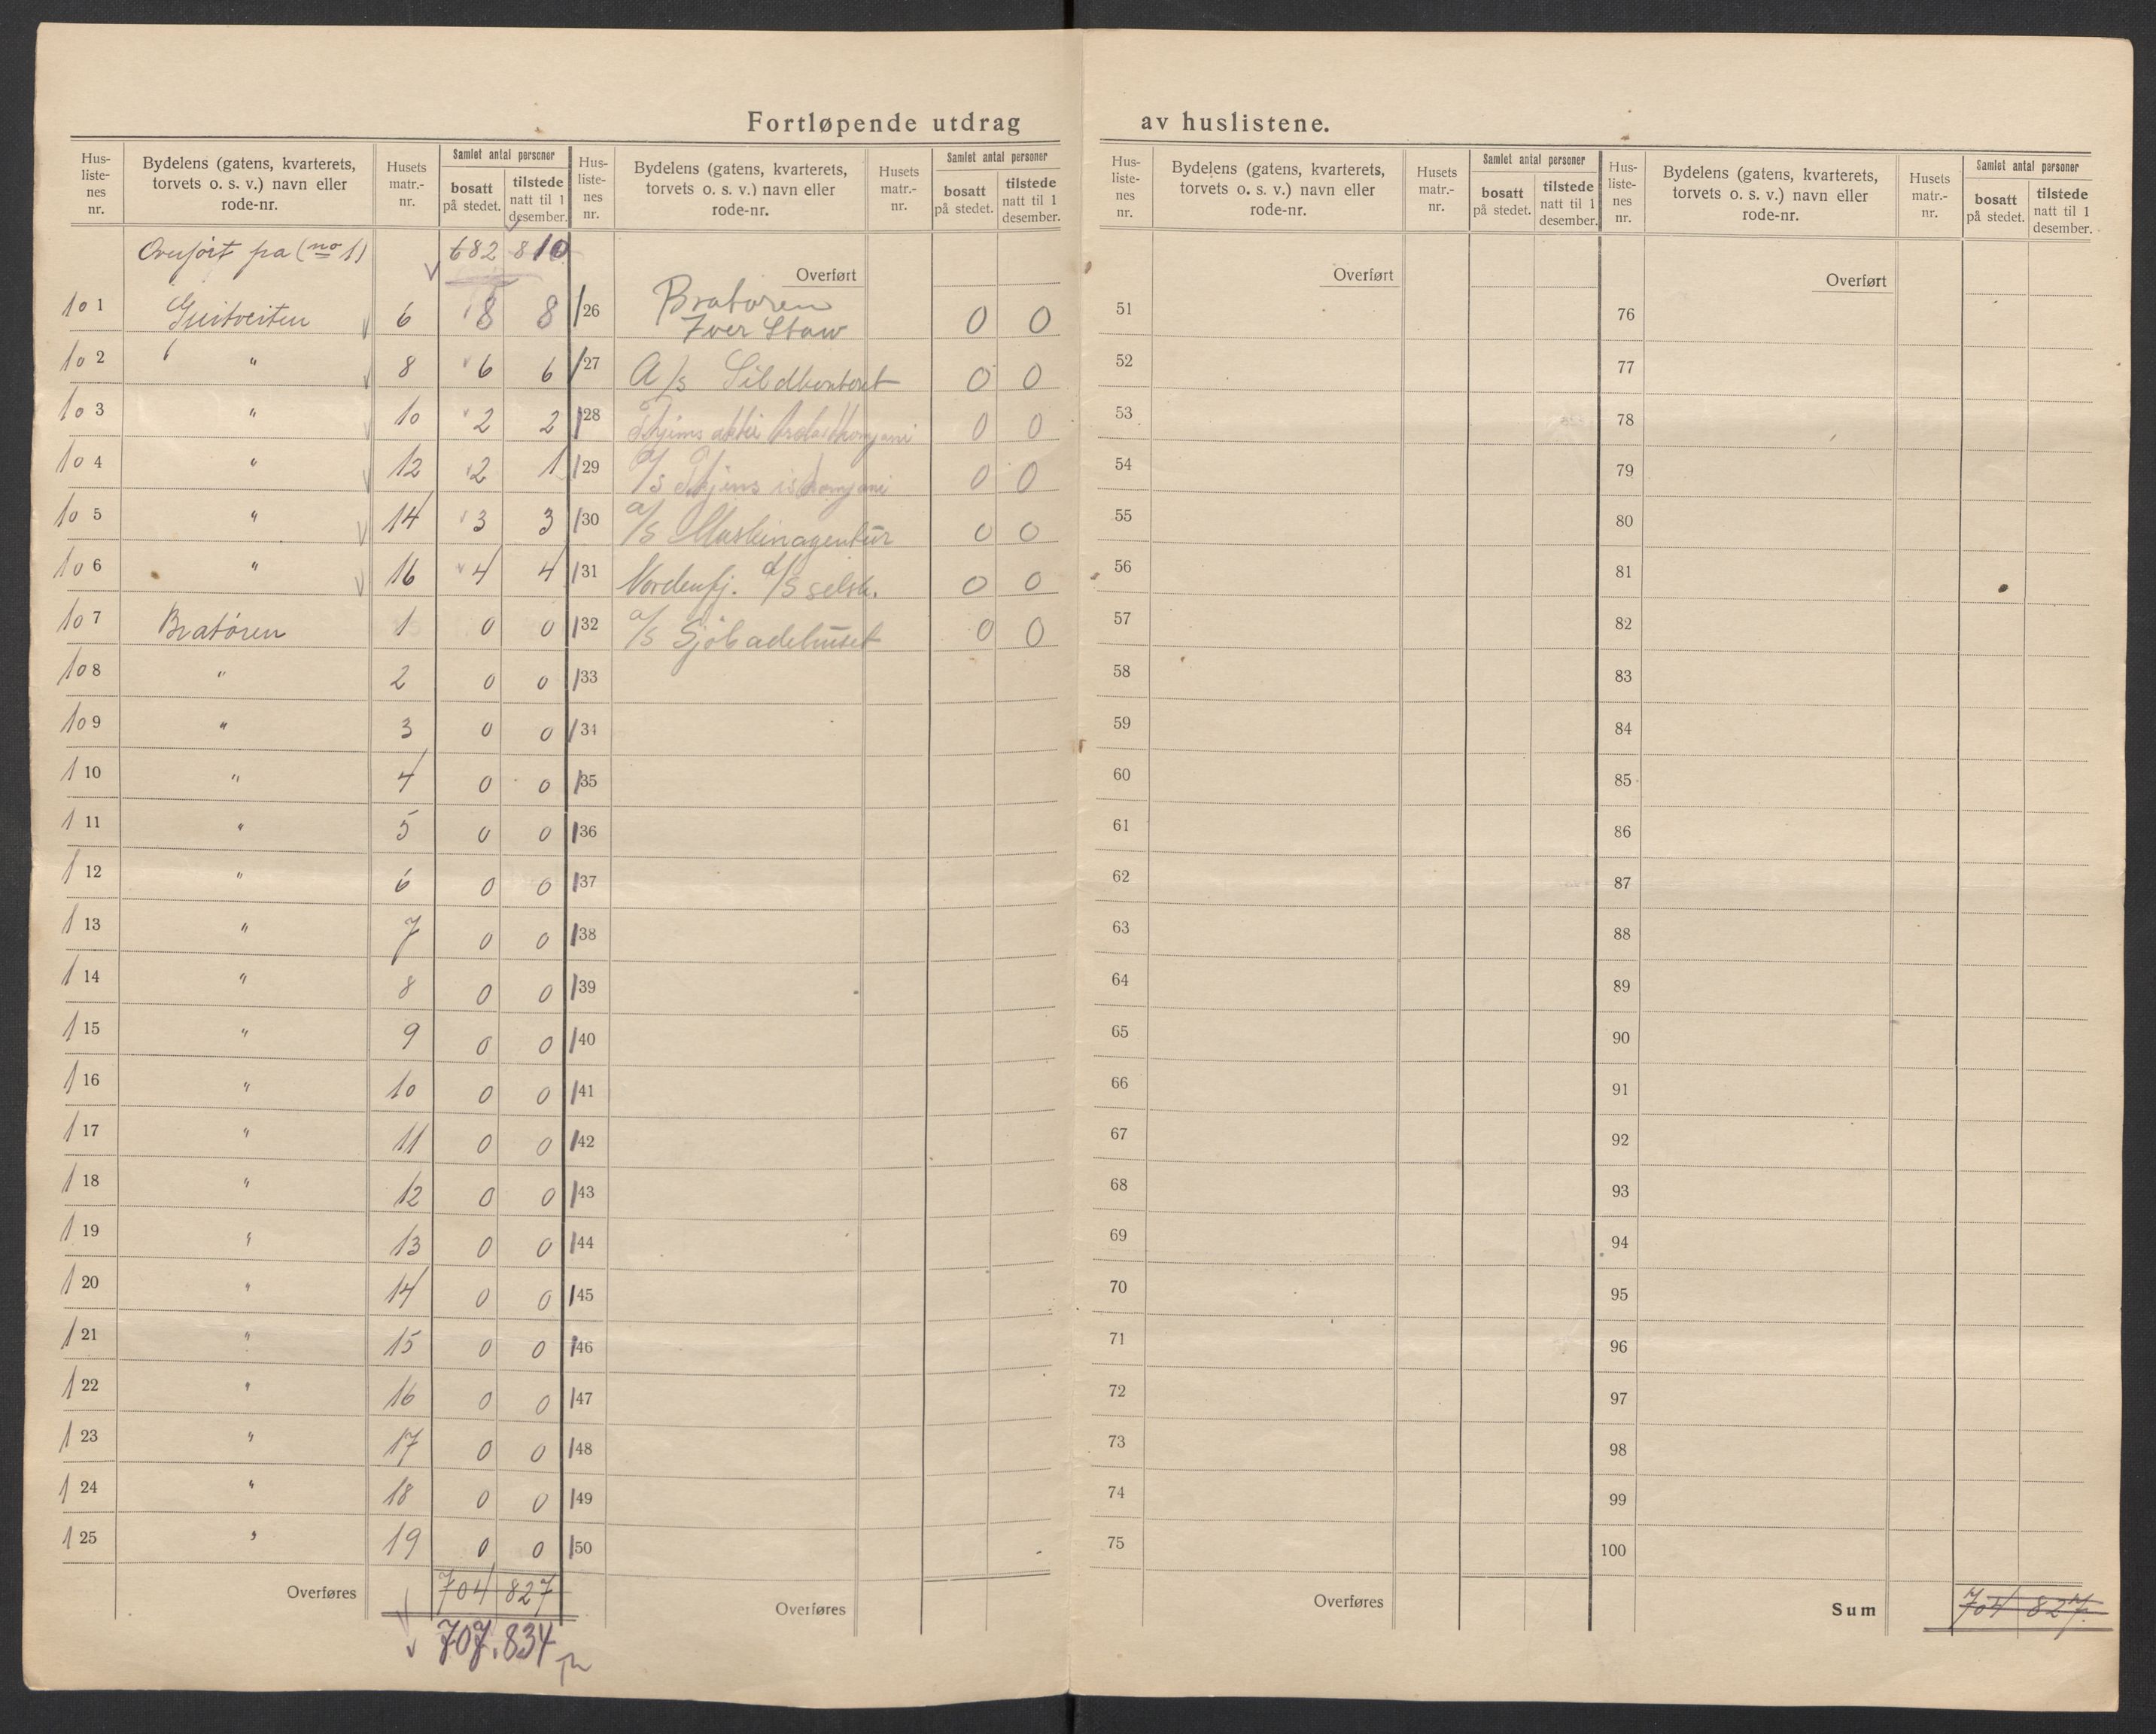 Fortløpende utdrag av huslistene.
Hus-listenes nr. Bydelens (gatens, kvarterets, torvets o. s. v.) navn eller rode-nr. Husets matr.-nr. Samlet antal personer bosatt på stedet. tilstede natt til 1 desember.
Overført fra (no 1) 682 810
101 6 8 8
102 " 8 6 6
103 " 10 2 2
104 " 12 2 1
105 " 14 3 3
106 " 16 4 4
107 Bratøren 1 0 0
108 " 2 0 0
109 " 3 0 0
110 " 4 0 0
111 " 5 0 0
112 " 6 0 0
113 " 7 0 0
114 " 8 0 0
115 " 9 0 0
116 " 10 0 0
117 " 11 0 0
118 " 12 0 0
119 " 13 0 0
120 " 14 0 0
121 " 15 0 0
122 " 16 0 0
123 " 17 0 0
124 " 18 0 0
125 " 19 0 0
Overføres 704 827
707. 834
Hus-listenes nr. Bydelens (gatens, kvarterets, torvets o. s. v.) navn eller rode-nr. Husets matr.-nr. Samlet antal personer bosatt på stedet. tilstede natt til 1 desember.
Overført
126 Bratøren
Iver 0 0
127 A/s Sildkontoret 0 0
128 0 0
129 A/s iskompani 0 0
130 a/s Maskinagentur 0 0
131 Nordenfj. d/s selsk. 0 0
132 a/s Sjöbadehuset 0 0
133
134
135
136
137
138
139
140
141
142
143
144
145
146
147
148
149
150
Overføres
Hus-listenes nr. Bydelens (gatens, kvarterets, torvets o. s. v.) navn eller rode-nr. Husets matr.-nr. Samlet antal personer bosatt på stedet. tilstede natt til 1 desember.
Overført
51
52
53
54
55
56
57
58
59
60
61
62
63
64
65
66
67
68
69
70
71
72
73
74
75
Overføres
Hus-listenes nr. Bydelens (gatens, kvarterets, torvets o. s. v.) navn eller rode-nr. Husets matr.-nr. Samlet antal personer bosatt på stedet. tilstede natt til 1 desember.
Overført
76
77
78
79
80
81
82
83
84
85
86
87
88
89
90
91
92
93
94
95
96
97
98
99
100
Sum 704 827